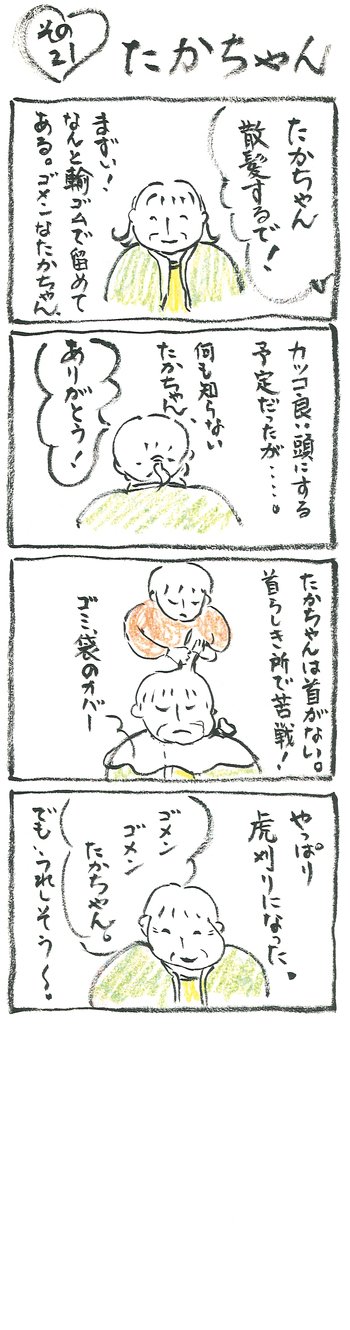 その
21
たかちゃん
たかちゃん
散髪するでー!
まずい!
なんと輪ゴムで留めて
ある。ゴメンなたかちゃん。
カッコ良い頭にする
予定だったが・・・・。
何も知らない
たかちゃん、
ありがとう!
たかちゃんは首がない。
首らしき所で苦戦!
ゴミ袋のオバー
やっぱり
虎刈りになった。
ゴメン
ゴメン
たかちゃん。
でも、うれしそう〜。